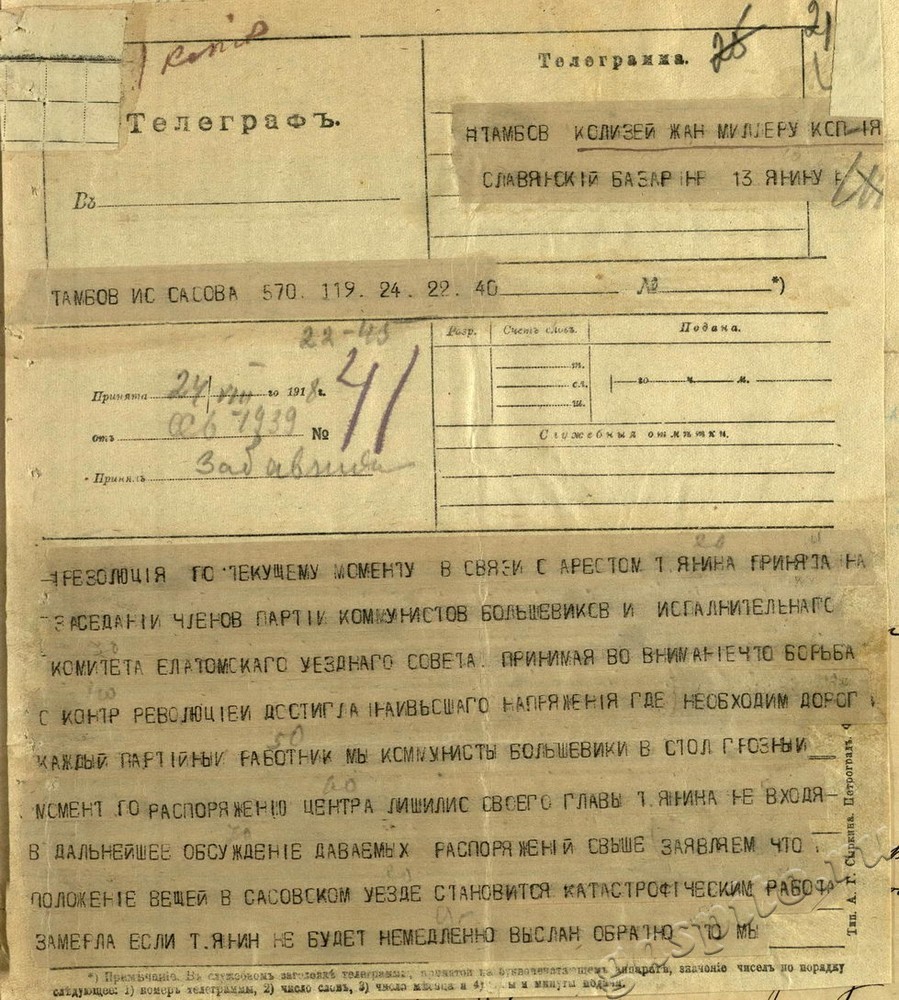 Копія
Телеграфъ.
Телеграмма.
26
21
ТАМБОВ КОЛИЗЕЙ ЖАН МИЛЛЕРУ КОПІЯ
СЛАВЯНСКІЙ БАЗАР НР 13 ЯНИНУ
Въ
ТАМБОВ ИС САСОВА 570. 119. 24. 22. 40
№ *)
22-45
Разр. Счетъ словъ. Подана.
т.
Принята 24/VIII го 1918 г.
сл. го ч. м.
ш.
отъ 1939 № 41
Служебныя отмѣтки.
Принялъ
РЕЗОЛЮЦІЯ ПО ТЕКУЩЕМУ МОМЕНТУ В СВЯЗИ С АРЕСТОМ Т.ЯНИНА ПРИНЯТА НА
ЗАСЕДАНІИ ЧЛЕНОВ ПАРТІИ КОММУНИСТОВ БОЛЬШЕВИКОВ И ИСПАЛНИТЕЛЬНАГО
КОМИТЕТА ЕЛАТОМСКАГО УЕЗДНАГО СОВЕТА. ПРИНИМАЯ ВО ВНИМАНІЕЧТО БОРЬБА
С КОНТР РЕВОЛЮЦІЕЙ ДОСТИГЛА НАИВЫСШАГО НАПРЯЖЕНІЯ ГДЕ НЕОБХОДИМ ДОРОГ
КАЖДЫЙ ПАРТІЙНЫЙ РАБОТНИК МЫ КОММУНИСТЫ БОЛЬШЕВИКИ В СТОЛ ГРОЗНЫЙ
МОМЕНТ ПО РАСПОРЯЖЕНІЮ ЦЕНТРА ЛИШИЛИС СВОЕГО ГЛАВЫ Т.ЯНИНА НЕ ВХОДЯ
В ДАЛЬНЕЙШЕЕ ОБСУЖДЕНІЕ ДАВАЕМЫХ РАСПОРЯЖЕНІЙ СВЫШЕ ЗАЯВЛЯЕМ ЧТО
ПОЛОЖЕНІЕ ВЕЩЕЙ В САСОВСКОМ УЕЗДЕ СТАНОВИТСЯ КАТАСТРОФІЧЕСКИМ РАБОТА
ЗАМЕРЛА ЕСЛИ Т.ЯНИН НЕ БУДЕТ НЕМЕДЛЕННО ВЫСЛАН ОБРАТНО ТО МЫ
*) Примѣчаніе. Въ служебномъ заголовкѣ телеграммы, принятой на буквопечатающемъ аппаратѣ, значеніе чиселъ по порядку
слѣдующее: 1) номеръ телеграммы, 2) число словъ, 3) число мѣсяца и 4) часы и минуты подачи.
Тип. А. Г. Сыркина. Петроградъ
gaspito.ru